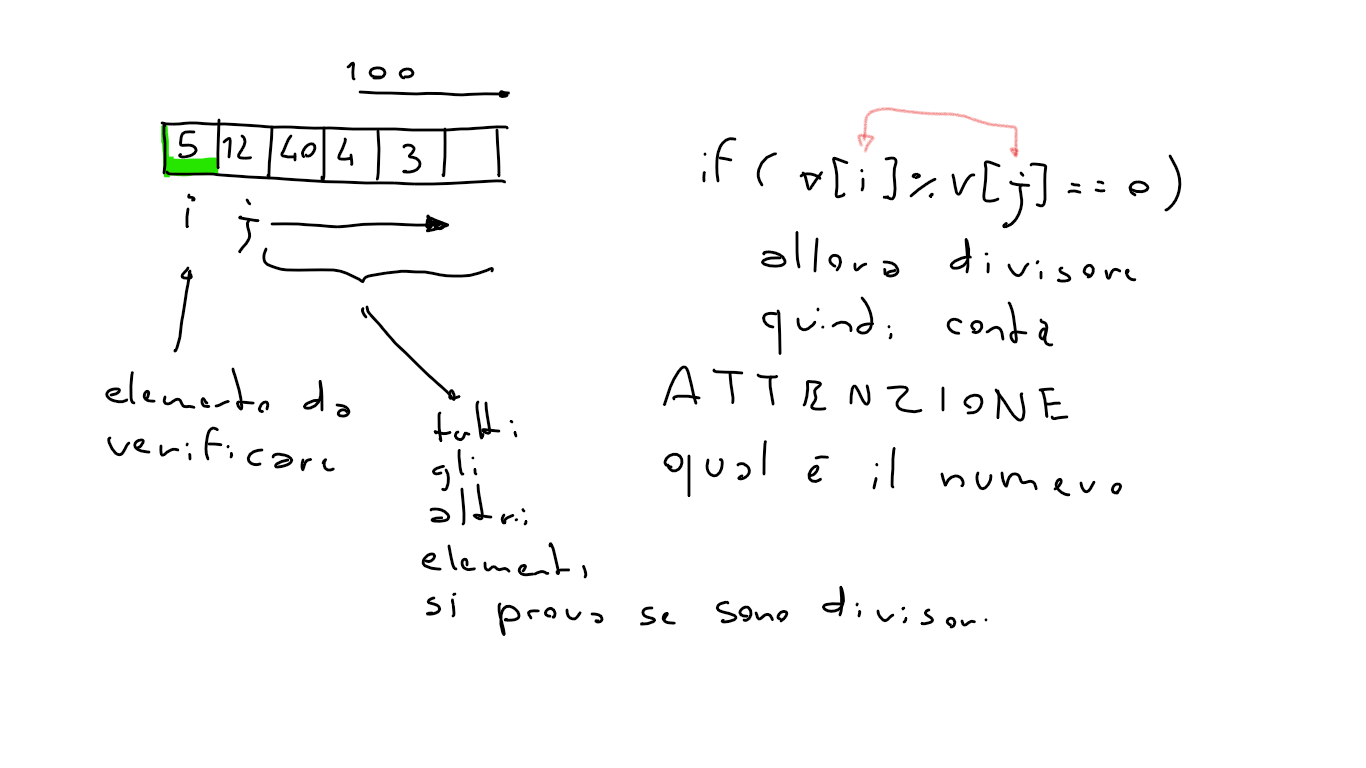 100
5 12 40 4 3
i j
elemento da
verificare
tutti
gli
altri
elementi
si prova se sono divisori
if ( v[i] % v[j] == 0 )
allora divisore
quindi conta
ATTENZIONE
qual è il numero